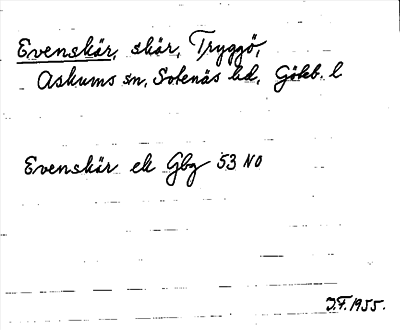 Evenskär, skär, Tryggö,
Askums sn, Sotenäs hd, Göteb. l
Evenskär ek Gbg 53 NO
J.F. 1955.